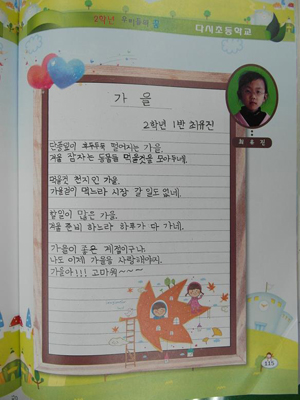 2학년 우리들의 꿈
다시초등학교
가 을
2학년 1반 최유진
최 유 진
단풍잎이 후두두둑 떨어지는 가을.
겨울 잠자는 동물들 먹을것을 모아두네.
먹을것 천지인 가을.
가을걷이 먹느라 시장 갈 일도 없네.
할일이 많은 가을.
겨울 준비 하느라 하루가 다 가네.
가을이 좋은 계절이구나.
나도 이제 가을을 사랑해야지.
가을아!!! 고마워~~~
115